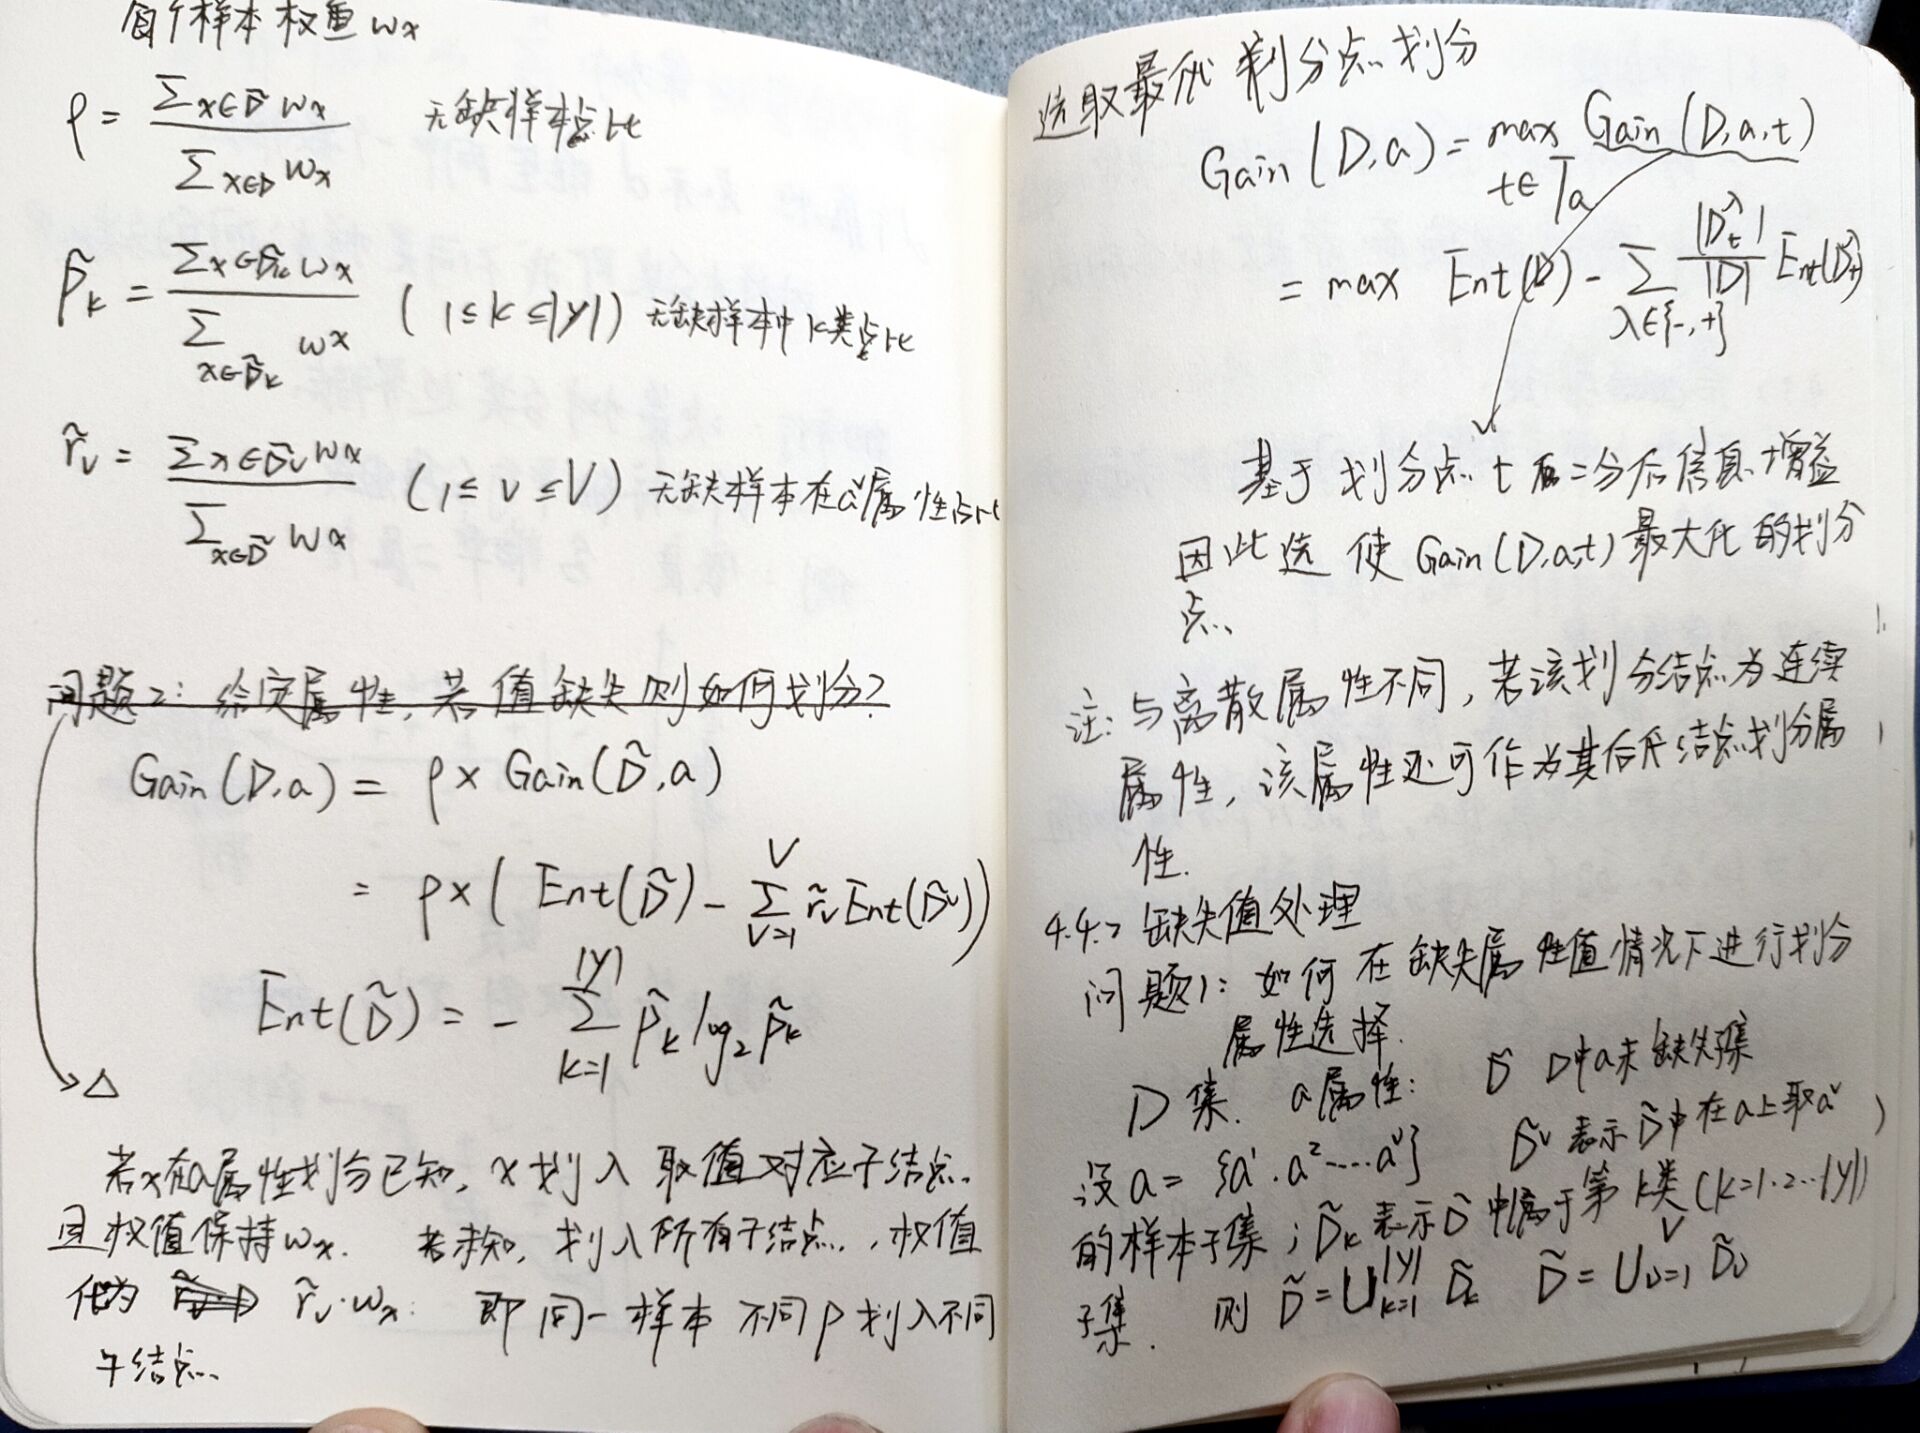 每个样本权重 wx
ρ = Σx∈D̃ wx / Σx∈D wx 无缺样本占比
p̃k = Σx∈D̃k wx / Σx∈D̃k wx (1≤k≤|y|) 无缺样本中k类占比
r̃v = Σx∈D̃v wx / Σx∈D̃ wx (1≤v≤V) 无缺样本在aᵛ属性占比
问题2: 给定属性, 若值缺失则如何划分?
Gain(D,a) = ρ× Gain(D̃,a)
= ρ×( Ent(D̃) - Σ_{v=1}^{V} r̃v Ent(D̃ᵛ))
Ent(D̃) = - Σ_{k=1}^{|y|} p̃k log₂ p̃k
△
若x在a属性划分已知, x划入取值对应子结点.
且权值保持wx. 若未知, 划入所有子结点, 权值
化为 r̃v·wx: 即同一样本不同p划入不同
子结点.
选取最优划分点划分
Gain(D,a) = max_{t∈Ta} Gain(D,a,t)
= max Ent(D) - Σ_{λ∈{-,+}} |Dtλ| / |D| Ent(Dtλ)
基于划分点 t 二分后信息增益
因此选使 Gain(D,a,t)最大化的划分
点.
注: 与离散属性不同, 若该划分结点为连续
属性, 该属性还可作为其后代结点划分属
性.
4.4.2 缺失值处理
问题1: 如何在缺失属性值情况下进行划分
属性选择.
D集. a属性: D̃ D中a未缺失集
设a = {a¹.a²....aᵛ} D̃ᵛ 表示D̃中在a上取aᵛ
的样本子集; D̃k 表示D̃中属于第k类(k=1.2...|y|)
子集. 则 D̃ = ∪_{k=1}^{|y|} D̃k D̃ = ∪_{v=1}^{V} D̃v